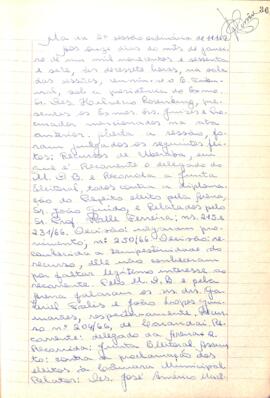 Ata da 2ª sessão ordinária de 11.1.67
Aos onze dias do mês de janei-
ro de mil novecentos e sessenta
e sete, às dezessete horas, na sala
das sessões, reuniu-se o E. Tribu-
nal, sob a presidência do Exmo.
Sr. Des. Rosenburg, pre-
sentes os Exmos. Srs. Juízes e Con-
vocados mencionados na ata
anterior. Aberta a sessão, fo-
ram julgados os seguintes fei-
tos: Recursos de em
que é Recorrente o delegado do
M. D. B. e Recorrida a Junta
Eleitoral, todos contra a diploma-
ção do Prefeito eleito pela Arena,
Sr. João e Relatados pelo
Sr. Prof. Ferreira; ns. 215 e
231/66. Decisão: negaram pro-
vimento; nº 230/66. Decisão: re-
conhecida a tempestividade do
recurso, dele não conheceram
por faltar legítimo interesse ao
recorrente. Pelo M. D. B e pela
Arena falaram os srs. drs.
e João Lopes Gui-
marães, respectivamente. Recur-
so nº 204/66, de Carandaí. Re-
corrente: delegado da Arena e
Recorrida: Junta Eleitoral. Assun-
to: contra a proclamação dos
eleitos à Câmara Municipal.
Relator: Des. José Américo